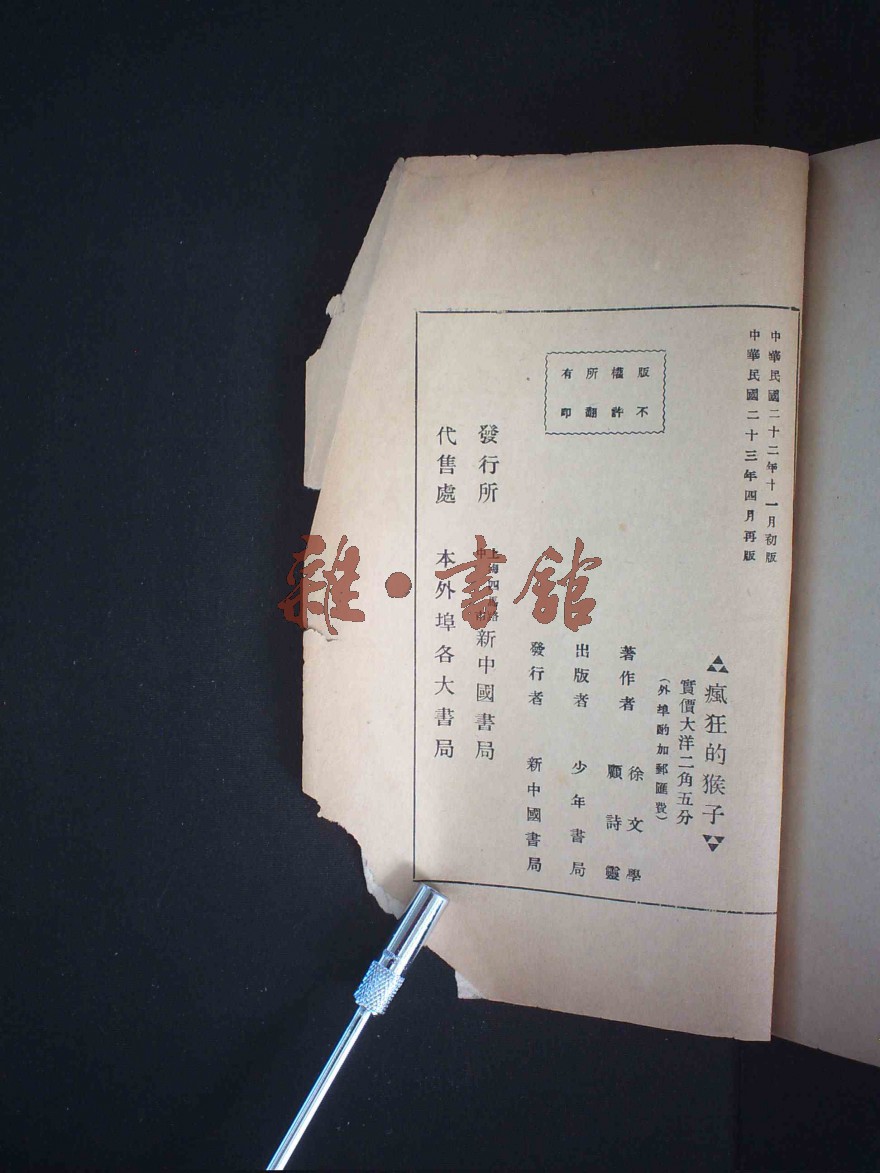 中華民國二十二年十一月初版
中華民國二十三年四月再版
瘋狂的猴子
實價大洋二角五分
(外埠酌加郵匯費)
著作者 徐文學
顧詩靈
出版者 少年書局
發行者 新中國書局
版權所有
不許翻印
發行所 上海四馬路中市 新中國書局
代售處 本外埠各大書局
雜·書館